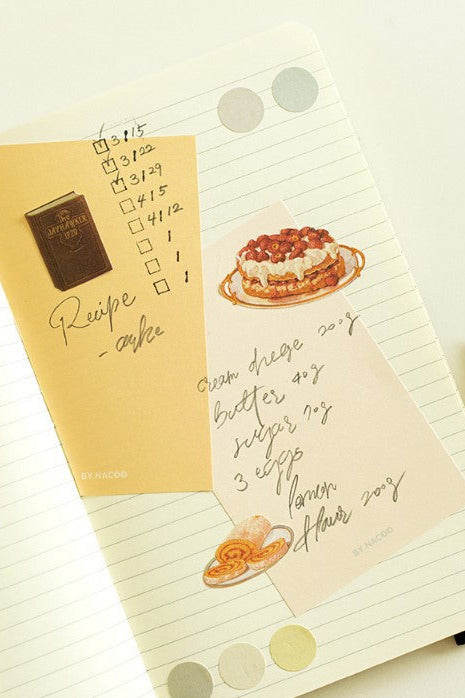 3/15
3/22
3/29
4/5
4/12
/
/
/
THE
JAYHAWKER
1920
Recipe
BY.NACOO
cream 200g
butter 40g
sugar 70g
3 eggs
lemon
flour 200g
BY.NACOO